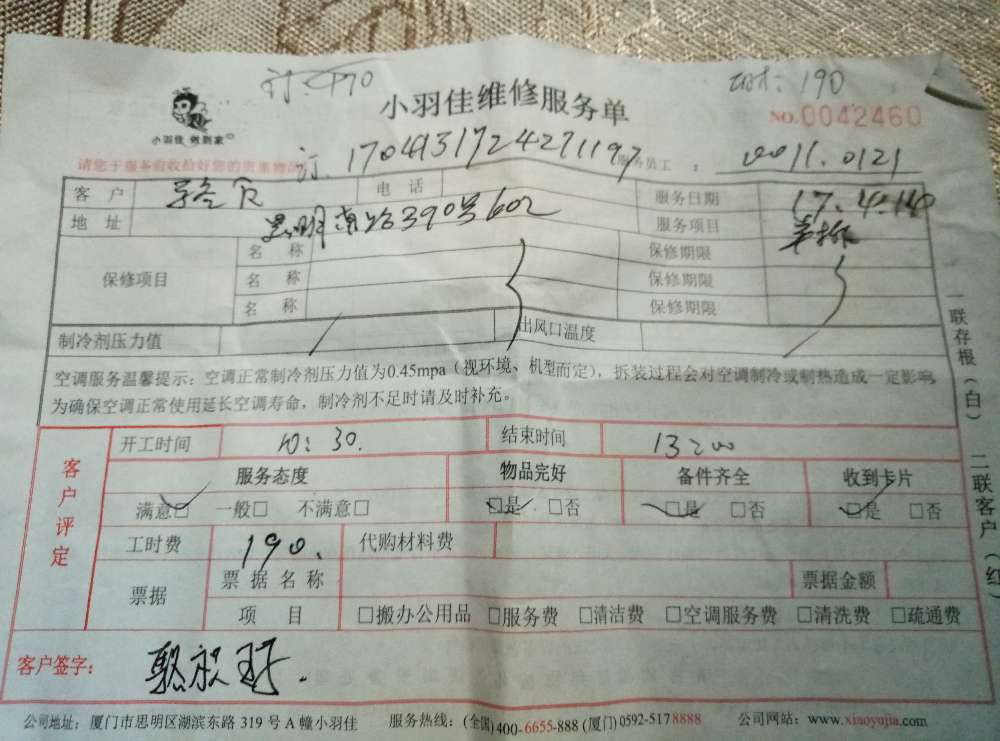 小羽佳维修服务单
190
NO.0042460
小羽佳 做到家
请您于服务前收拾好您的贵重物品
服务员工: 0011.0121
客户 电话 服务日期 17.4.
地址 思明南路390号602 服务项目
保修项目 名称 保修期限
名称 保修期限
名称 保修期限
制冷剂压力值 / 出风口温度
空调服务温馨提示:空调正常制冷剂压力值为0.45mpa(视环境、机型而定),拆装过程会对空调制冷或制热造成一定影响,
为确保空调正常使用延长空调寿命,制冷剂不足时请及时补充。
一联存根(白) 二联客户(红)
客户评定
开工时间 10:30. 结束时间 13:00
服务态度 物品完好 备件齐全 收到卡片
满意☑ 一般□ 不满意□ ☑是 □否 ☑是 □否 ☑是 □否
工时费 190. 代购材料费
票据 票据名称 票据金额
项目 □搬办公用品 □服务费 □清洁费 □空调服务费 □清洗费 □疏通费
客户签字:
公司地址:厦门市思明区湖滨东路 319 号 A 幢小羽佳 服务热线:(全国)400-6655-888 (厦门)0592-5178888 公司网站:www.xiaoyujia.com